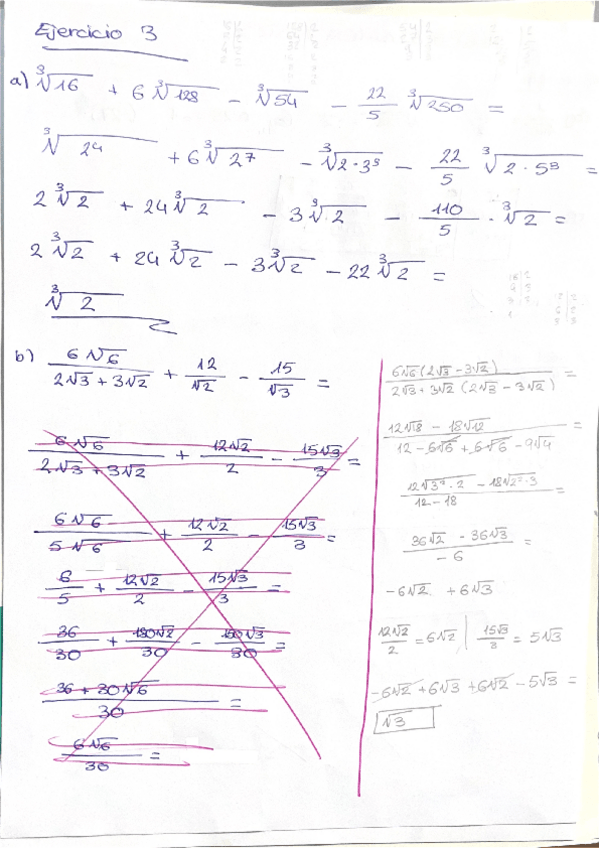 Ejercicio 3
a) ∛16 + 6∛128 - ∛54 - 22/5 ∛250 =
∛2⁴ + 6∛2⁷ - ∛2·3³ - 22/5 ∛2·5³ =
2∛2 + 24∛2 - 3∛2 - 110/5 · ∛2 =
2∛2 + 24∛2 - 3∛2 - 22∛2 =
∛2
b) 6√6/(2√3 + 3√2) + 12/√2 - 15/√3 =
6√6/(2√3 + 3√2) + 12√2/2 - 15√3/3 =
6√6/5√6 + 12√2/2 - 15√3/3 =
6/5 + 12√2/2 - 15√3/3 =
36/30 + 180√2/30 - 150√3/30 =
(36 + 30√6)/30 =
6√6/30 =
6√6(2√3 - 3√2)/(2√3 + 3√2 (2√3 - 3√2)) =
(12√18 - 18√12)/(12 - 6√6 + 6√6 - 9√4) =
(12√3²·2 - 18√2²·3)/(12 - 18) =
(36√2 - 36√3)/-6 =
-6√2 + 6√3
12√2/2 = 6√2 | 15√3/3 = 5√3
-6√2 + 6√3 + 6√2 - 5√3 =
√3